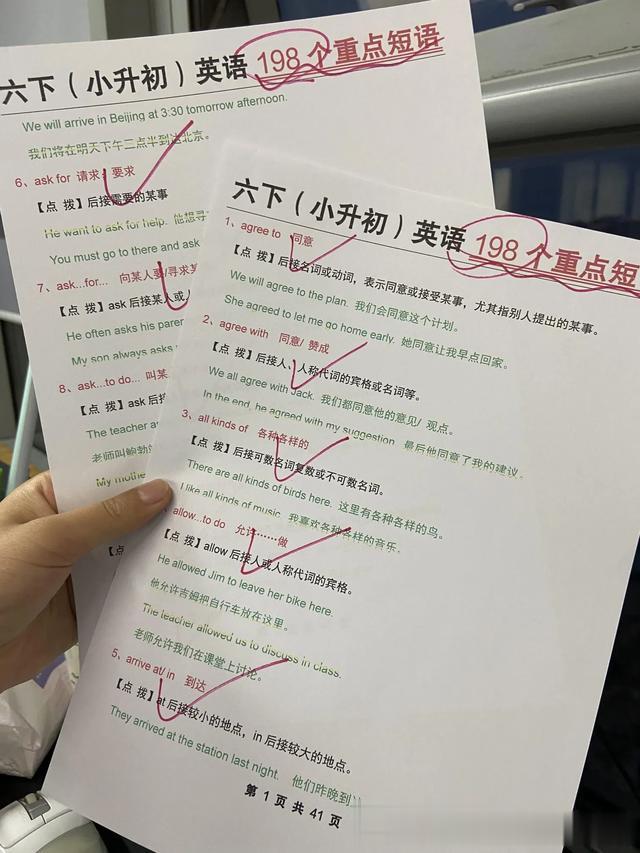 六下（小升初）英语 198 个重点短语
We will arrive in Beijing at 3:30 tomorrow afternoon.
我们将在明天下午三点半到达北京。
6、ask for 请求 要求
【点 拨】后接需要的某事
He want to ask for help. 他想寻
You must go to there and ask
7、ask...for... 向某人要/寻求某
【点 拨】ask 后接某人或人
He often asks his paren
My son always asks
8、ask...to do... 叫某
【点 拨】ask 后接
The teacher a
老师叫鲍勃
My mothe
六下（小升初）英语 198 个重点短语
1、agree to 同意
【点 拨】后接名词或动词，表示同意或接受某事，尤其指别人提出的某事。
We will agree to the plan. 我们会同意这个计划。
She agreed to let me go home early. 她同意让我早点回家。
2、agree with 同意/ 赞成
【点 拨】后接人、人称代词的宾格或名词等。
We all agree with Jack. 我们都同意他的意见/ 观点。
In the end, he agreed with my suggestion. 最后他同意了我的建议。
3、all kinds of 各种各样的
【点 拨】后接可数名词复数或不可数名词。
There are all kinds of birds here. 这里有各种各样的鸟。
I like all kinds of music. 我喜欢各种各样的音乐。
allow...to do 允许……做
【点 拨】allow 后接人或人称代词的宾格。
He allowed Jim to leave her bike here.
他允许吉姆把自行车放在这里。
The teacher allowed us to discuss in class.
老师允许我们在课堂上讨论。
5、arrive at/ in 到达
【点 拨】at 后接较小的地点，in 后接较大的地点。
They arrived at the station last night. 他们昨晚到
第 1 页 共 41 页